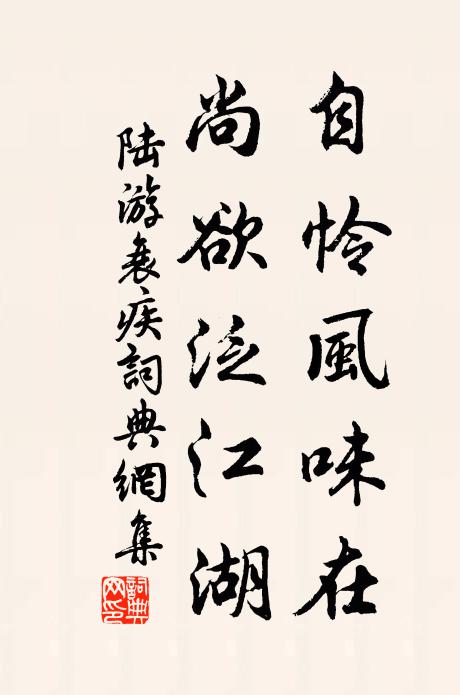 自怜風味在
尚欲泛江湖
陆游衰疾詞典網集
詞典网印